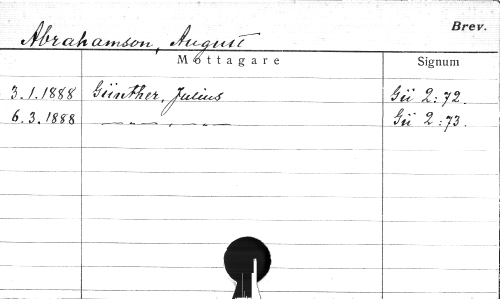 Brev.
Abrahamson, August
Mottagare Signum
3.1.1888 Günther, Julius Gü 2:72.
6.3.1888 —„— , —„— Gü 2:73.